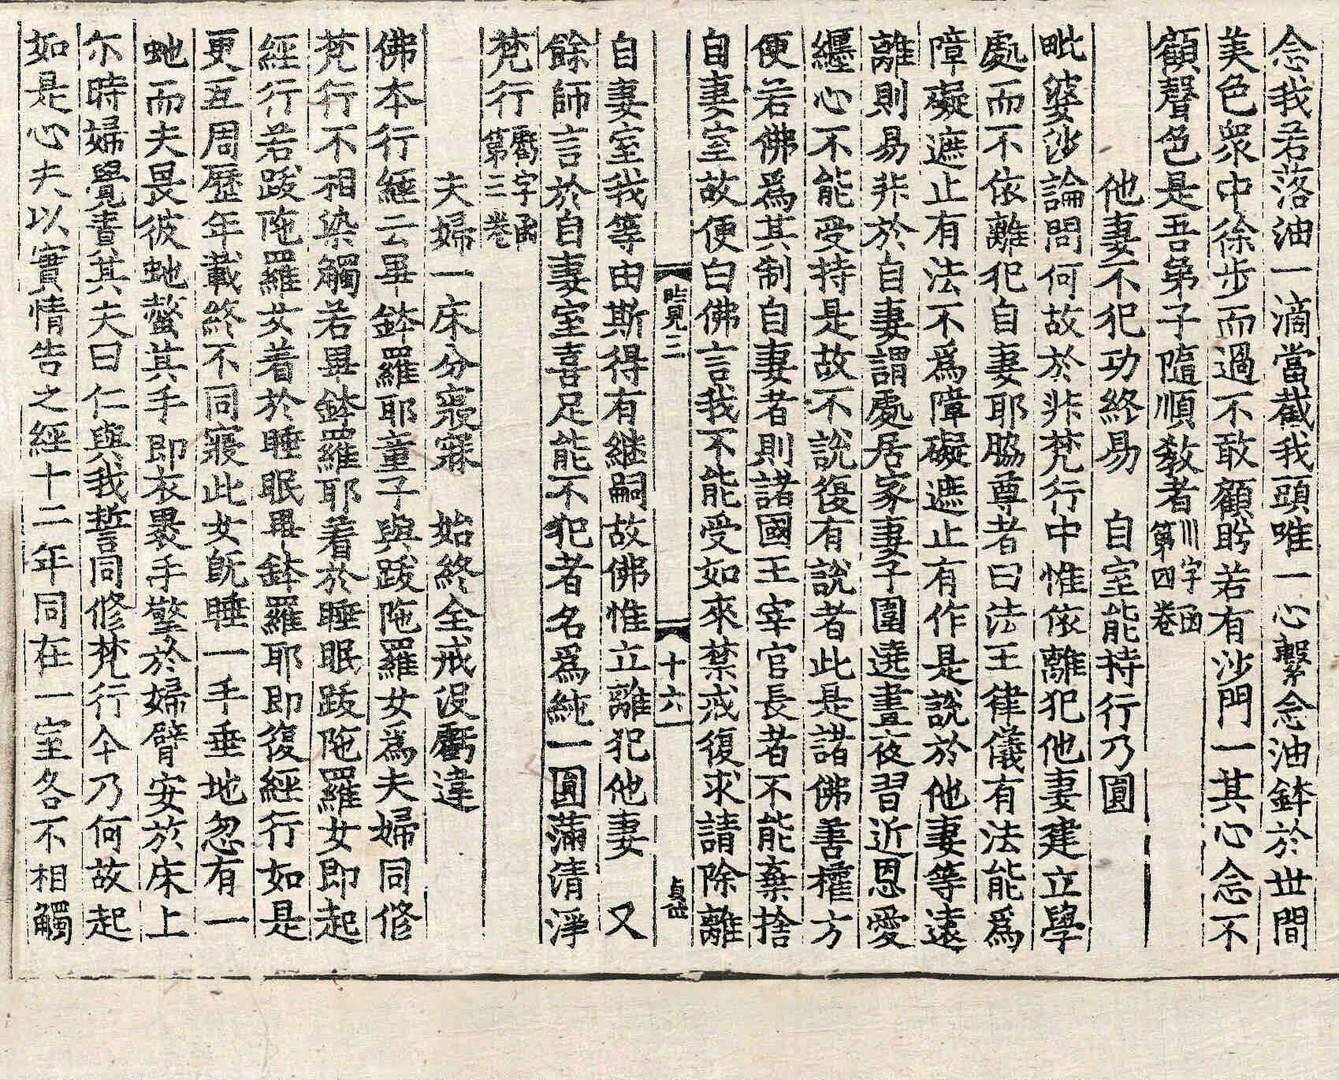 念我若落油一滴當截我頭唯一心繫念油鉢於世間
美色衆中徐步而過不敢顧眄若有沙門一其心念不
顧聲色是吾弟子隨順教者川字函第四卷
他妻不犯功終易　自室能持行乃圓
毗婆沙論問何故於非梵行中惟依離犯他妻建立學
處而不依離犯自妻耶脇尊者曰法王律儀有法能爲
障礙遮止有法不爲障礙遮止有作是說於他妻等遠
離則易非於自妻謂處居家妻子圍遶晝夜習近恩愛
纏心不能受持是故不說復有說者此是諸佛善權方
便若佛爲其制自妻者則諸國王宰官長者不能棄捨
自妻室故便白佛言我不能受如來禁戒復求請除離
㫖見三
十六
貞㦲
自妻室我等由斯得有継嗣故佛惟立離犯他妻　又
餘師言於自妻室喜足能不犯者名爲純一圓滿清淨
梵行𢋫字函第三卷
夫婦一床分寢寐　始終全戒没虧違
佛本行經云畢鉢羅耶童子與跋陁羅女爲夫婦同修
梵行不相染觸若畢鉢羅耶着於睡眠跋陁羅女即起
經行若跋陁羅女着於睡眠畢鉢羅耶即復經行如是
更互周歷年載終不同寢此女既睡一手垂地忽有一
虵而夫畏彼虵螫其手即衣褁手擎於婦臂安於床上
尒時婦覺責其夫曰仁與我誓同修梵行今乃何故起
如是心夫以實情告之經十二年同在一室各不相觸